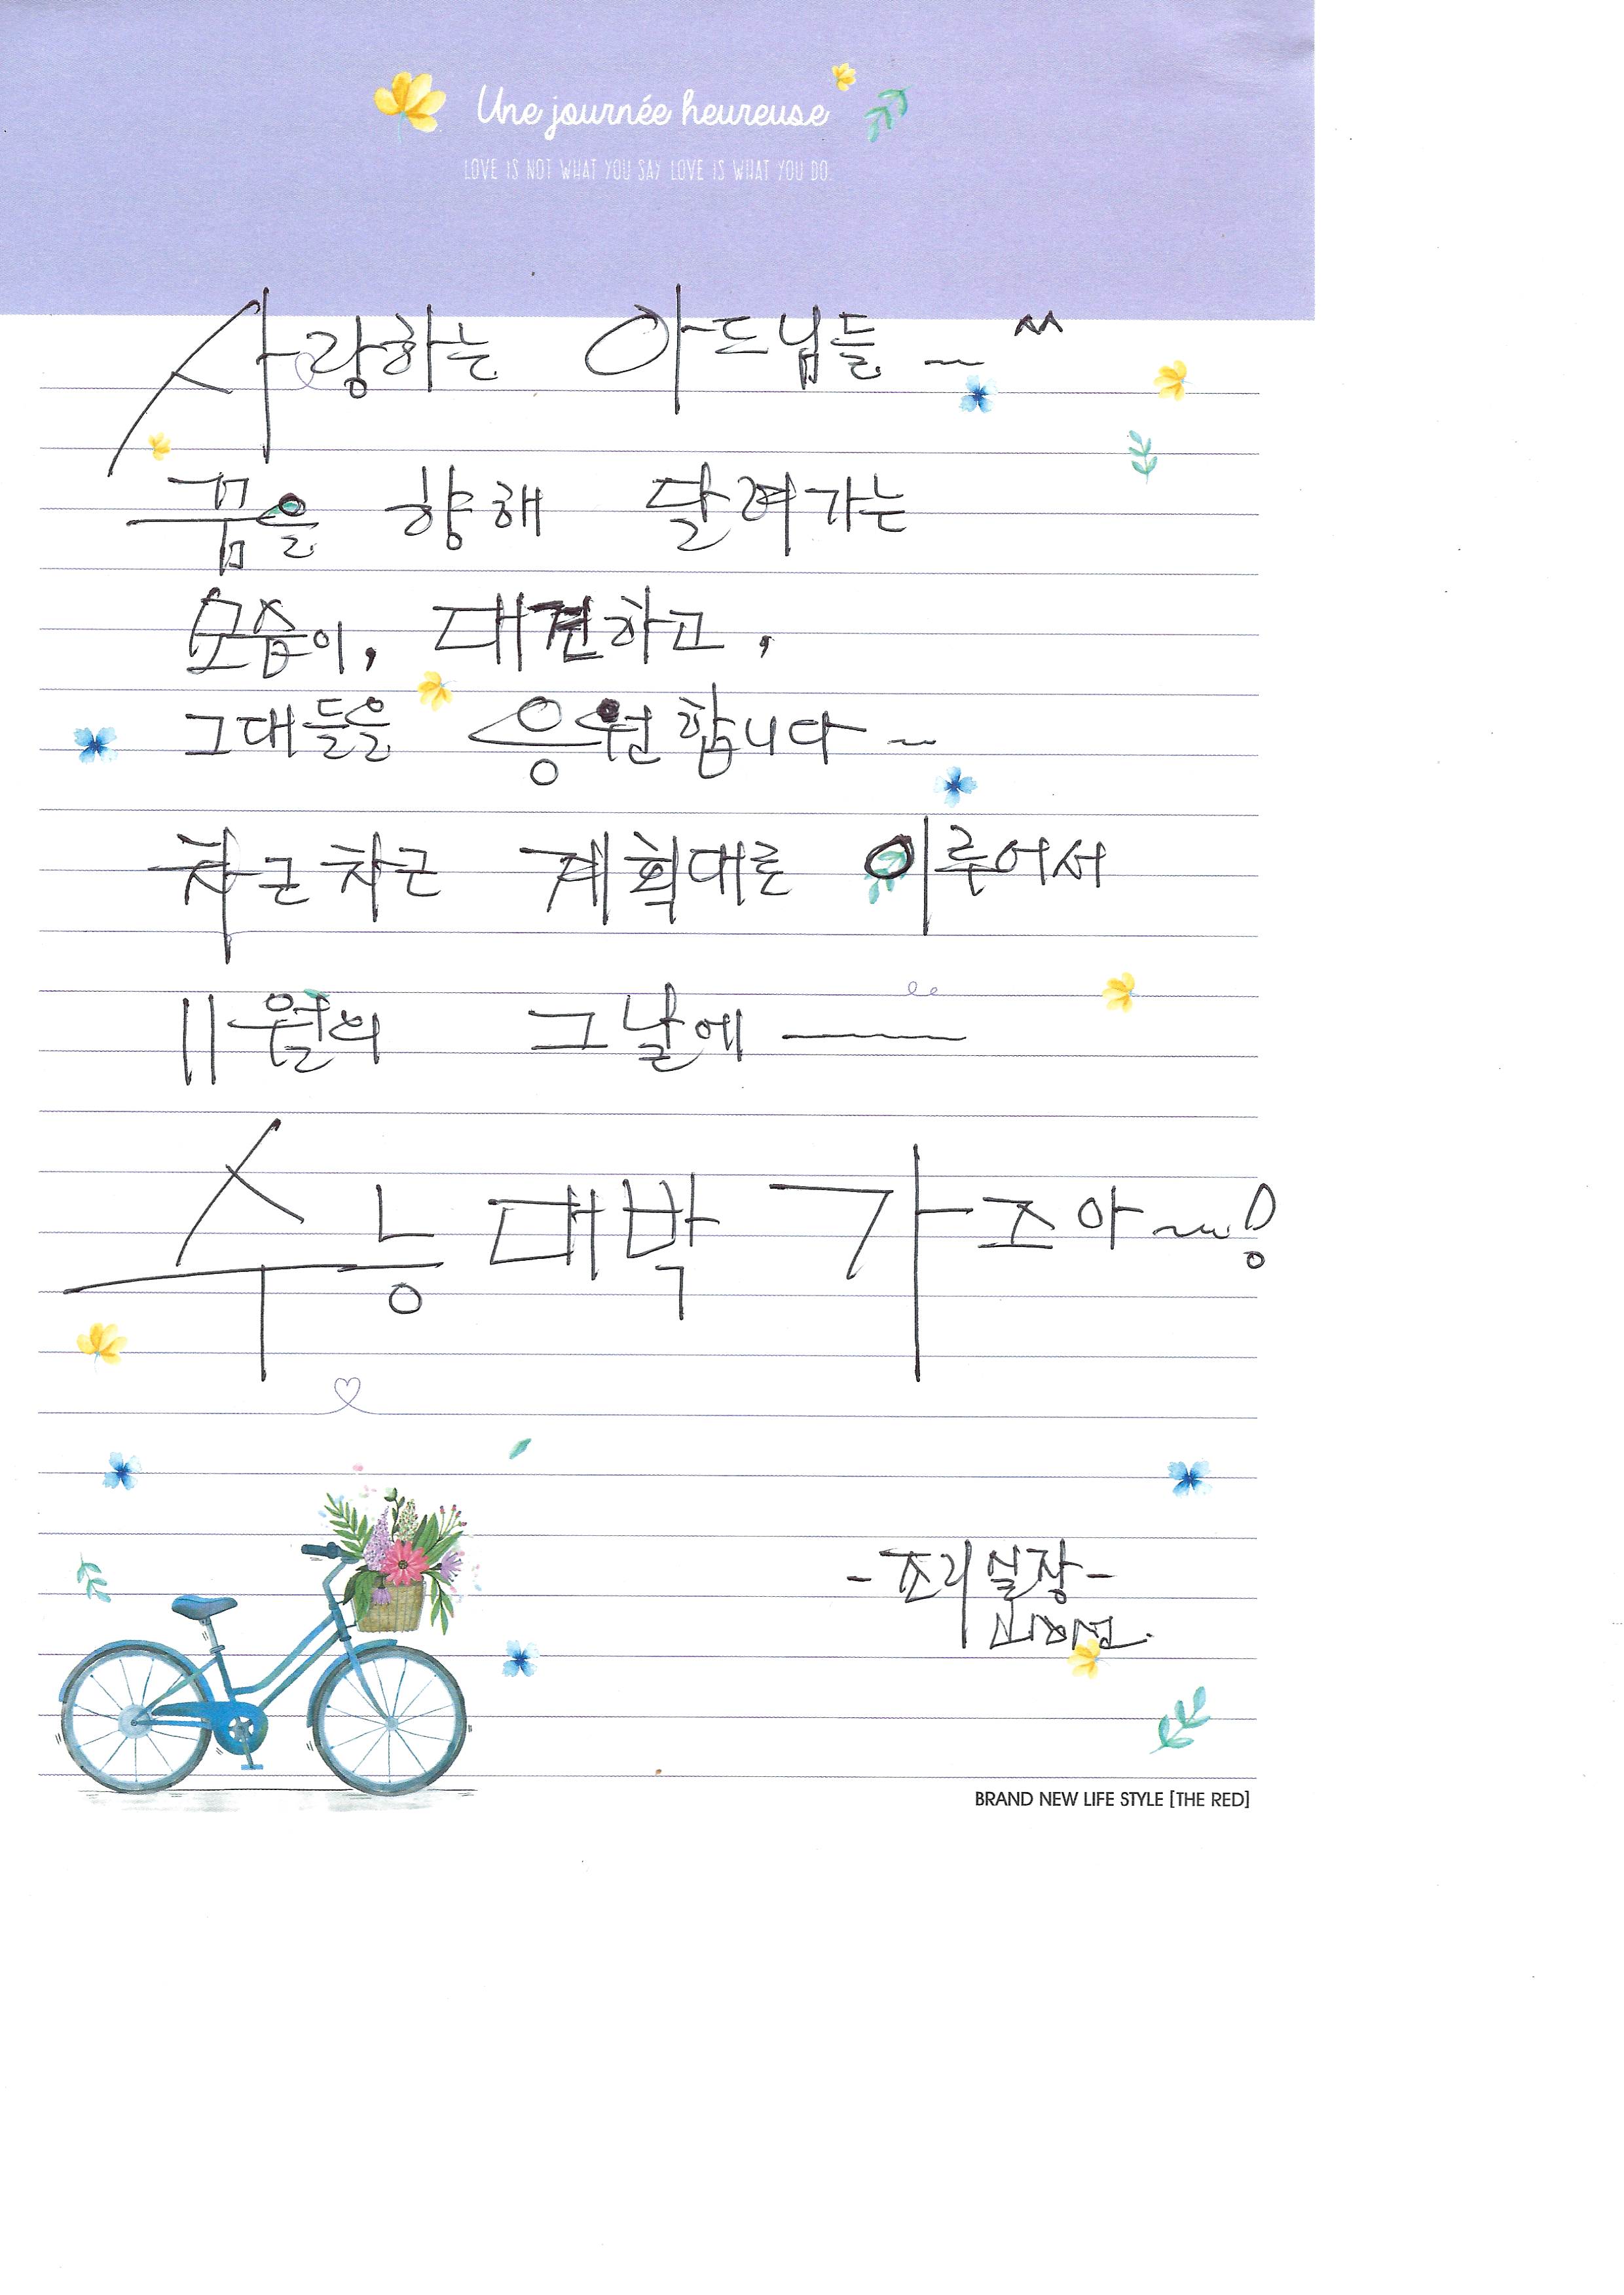 Une journée heureuse
LOVE IS NOT WHAT YOU SAY LOVE IS WHAT YOU DO.
사랑하는 아드님들 ~ ^^
꿈을 향해 달려가는
모습이, 대견하고,
그대들을 응원합니다 ~
차근차근 계획대로 이루어서
11월의 그날에 ——
수능대박 가즈아~!
- 조리실장 -
BRAND NEW LIFE STYLE [THE RED]